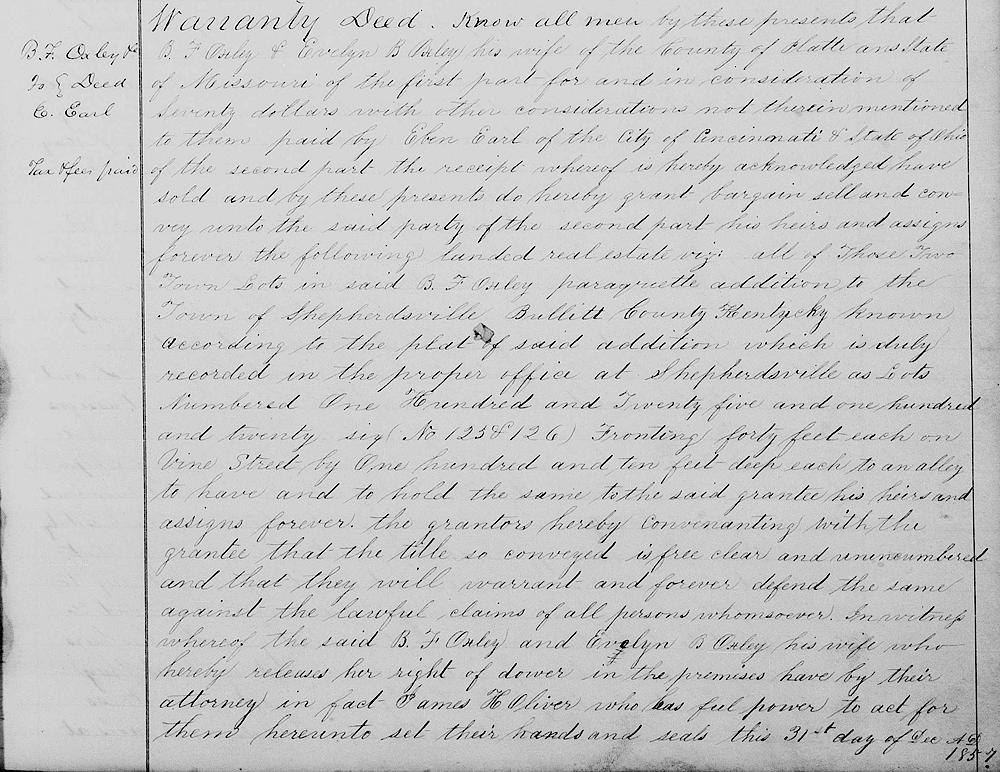 Warranty Deed. Know all men by these presents that
B. F. Oxley &c
B. F Oxley & Evelyn B Oxley his wife of the County of Platte ans State
To } Deed
of Missouri of the first part for and in consideration of
E. Earl
Seventy dollars with other considerations not therein mentioned
to them paid by Eben Earl of the City of Cincinnati & State of Ohio
Tax & fees paid
of the second part the receipt whereof is hereby acknowledged have
sold and by these presents do hereby grant bargain sell and con=
vey unto the said party of the second part his heirs and assigns
forever the following landed real estate viz: all of Those Two
Town Lots in said B. F Oxley paraquette addition to the
Town of Shepherdsville Bullitt County Kentycky known
according to the plat of said addition which is duly
recorded in the proper office at Shepherdsville as Lots
Numbered One Hundred and Twenty five and one hundred
and twenty six (No 125 & 126) Fronting forty feet each on
Vine Street by One hundred and ten feet deep each to an alley
to have and to hold the same to the said grantee his heirs and
assigns forever. the grantors hereby convenanting with the
grantee that the title so conveyed is free clear and unencumbered
and that they will warrant and forever defend the same
against the lawful claims of all persons whomsoever. In witness
whereof the said B. F Oxley and Evelyn B Oxley his wife who
hereby releases her right of dower in the premises have by their
attorney in fact James H Oliver who has ful power to act for
them hereunto set their hands and seals this 31st day of Dec AD
1857.